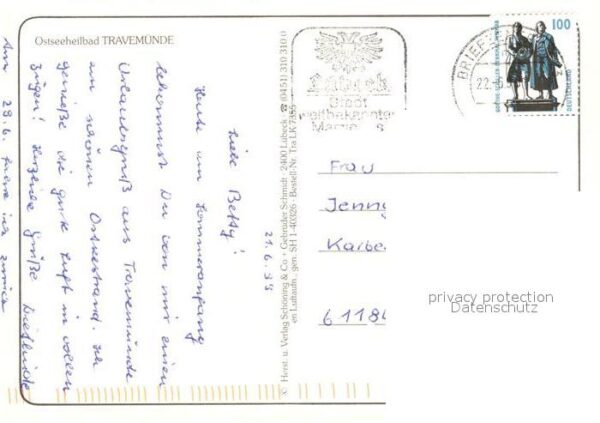 Ostseeheilbad TRAVEMÜNDE
21.6.99
Liebe Betty!
Heute am Sommeranfang
bekommst Du von mir einen
Urlaubsgruß aus Travemünde
am schönen Ostseestrand. Ich
genieße die gute Luft in vollen
Zügen! Herzliche Grüße Dietlinde
Am 28.6. fahre ich zurück
© Herst. u. Verlag Schöning & Co + Gebrüder Schmidt · 2400 Lübeck · ☎ (04 51) 310 310
en Luftaufn., gen. SH 1-40326 · Bestell-Nr. Tra LK 7355
Lübeck
Stadt
weltbekannten
BRIEF
22.
100
DEUTSCHLAND
Frau
Jenny
Karbe
61184
privacy protection
Datenschutz